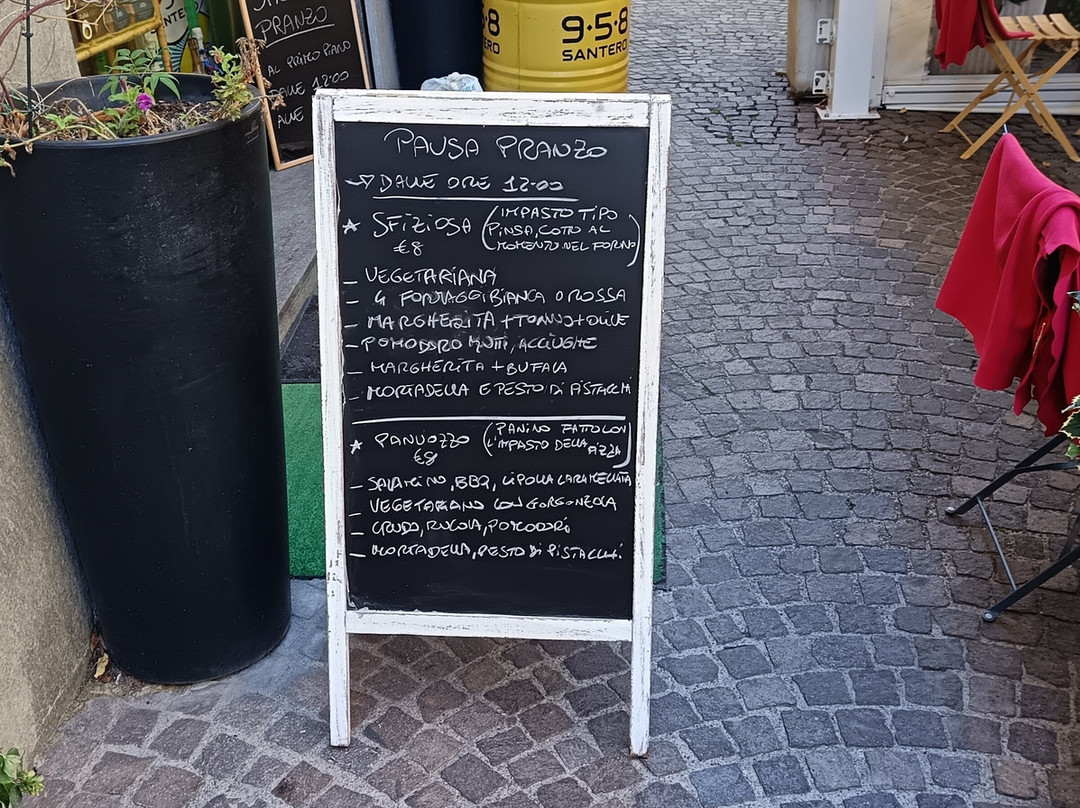 PRANZO
AL PRIMO PIANO
DALLE 12:00
ALLE
9·5·8
SANTERO
PAUSA PRANZO
→ DALLE ORE 12:00
* SFIZIOSA (IMPASTO TIPO
PINSA, COTTO AL
MOMENTO NEL FORNO)
€8
- VEGETARIANA
- 4 FORMAGGI BIANCA O ROSSA
- MARGHERITA + TONNO + OLIVE
- POMODORO, ACCIUGHE
- MARGHERITA + BUFALA
- MORTADELLA E PESTO DI PISTACCHI
* PANUOZZO (PANINO FATTO CON
L'IMPASTO DELLA
PIZZA)
€8
- SALAMINO, BBQ, CIPOLLA CARAMELLATA
- VEGETARIANO CON GORGONZOLA
- CRUDO, RUCOLA, POMODORI
- MORTADELLA, PESTO DI PISTACCHI